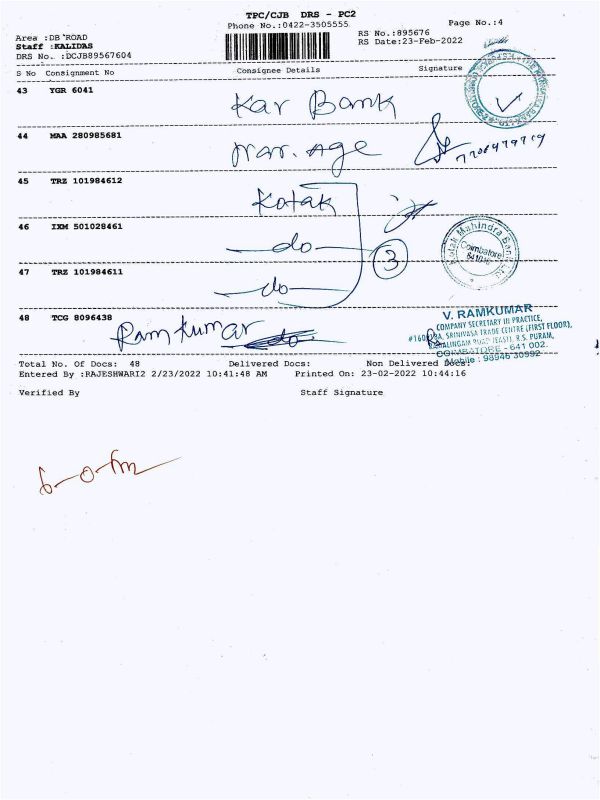 TPC/CJB DRS - PC2
Phone No.:0422-3505555
Page No.:4
Area :DB ROAD
RS No.:895676
Staff :KALIDAS
RS Date:23-Feb-2022
DRS No. :DCJB89567604
S No Consignment No Consignee Details Signature
43 YGR 6041
Kar Bank
44 MAA 280985681
Nar. Age
45 TRZ 101984612
Kotak
46 IXM 501028461
do
3
Kotak Mahindra Bank
Coimbatore
47 TRZ 101984611
do
48 TCG 8096438
Ramkumar do
V. RAMKUMAR
COMPANY SECRETARY IN PRACTICE,
SRINIVASA TRADE CENTRE (FIRST FLOOR),
R.S. PURAM,
COIMBATORE - 641 002.
Mobile : 98946 30992
Total No. Of Docs: 48 Delivered Docs: Non Delivered Docs:
Entered By :RAJESHWARI2 2/23/2022 10:41:48 AM Printed On: 23-02-2022 10:44:16
Verified By Staff Signature